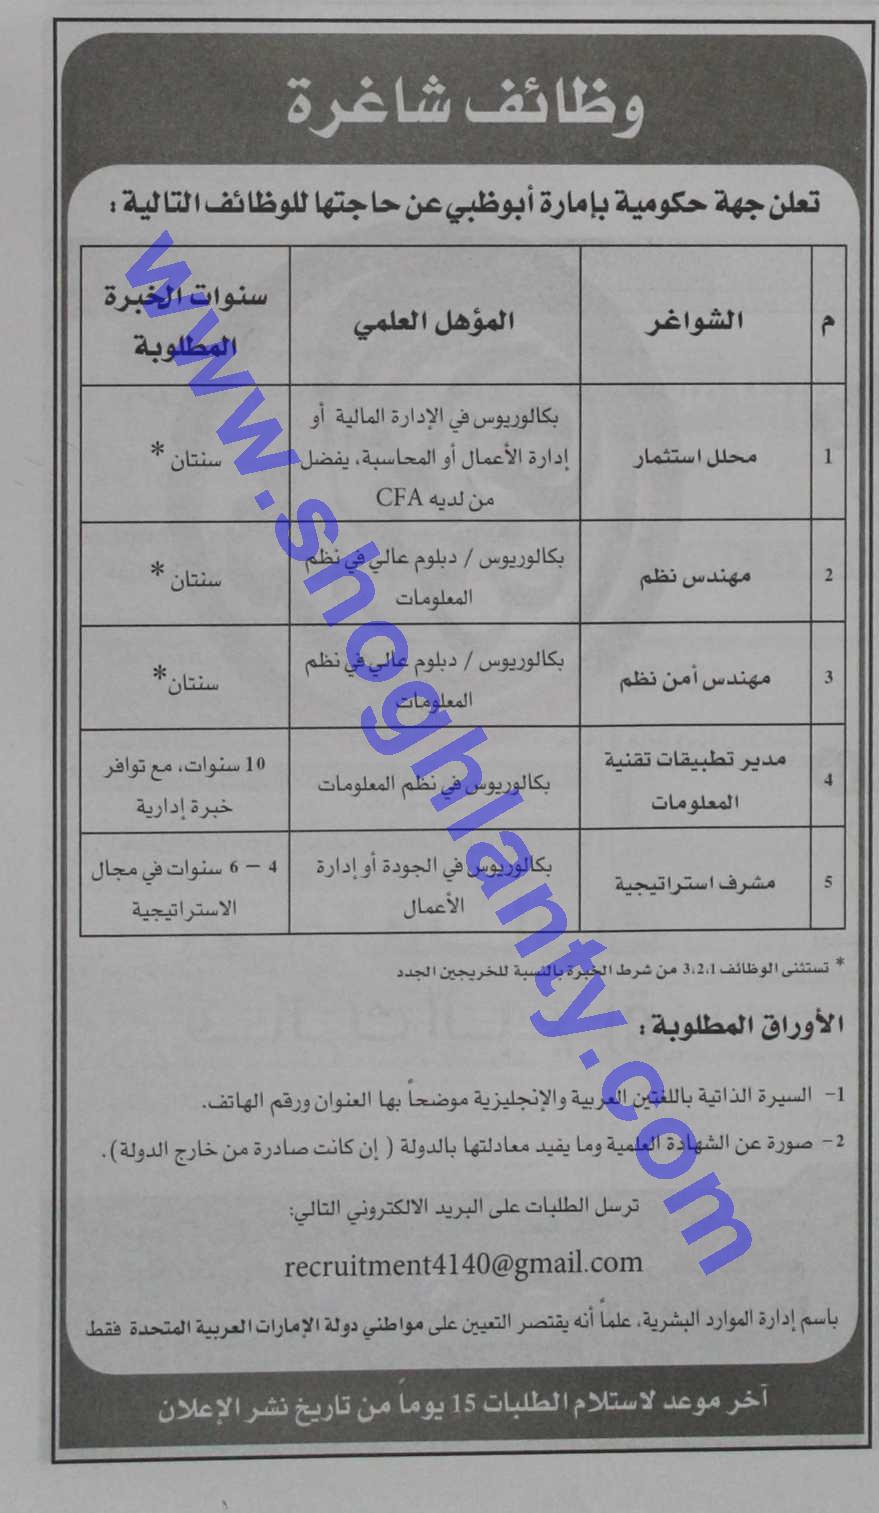 وظائف شاغرة
تعلن جهة حكومية بإمارة أبوظبي عن حاجتها للوظائف التالية :
م
الشواغر
المؤهل العلمي
سنوات الخبرة
المطلوبة
1
محلل استثمار
بكالوريوس في الإدارة المالية أو
إدارة الأعمال أو المحاسبة، يفضل
من لديه CFA
سنتان *
2
مهندس نظم
بكالوريوس / دبلوم عالي في نظم
المعلومات
سنتان *
3
مهندس أمن نظم
بكالوريوس / دبلوم عالي في نظم
المعلومات
سنتان*
4
مدير تطبيقات تقنية
المعلومات
بكالوريوس في نظم المعلومات
10 سنوات، مع توافر
خبرة إدارية
5
مشرف استراتيجية
بكالوريوس في الجودة أو إدارة
الأعمال
4 – 6 سنوات في مجال
الاستراتيجية
* تستثنى الوظائف 3،2،1 من شرط الخبرة بالنسبة للخريجين الجدد
الأوراق المطلوبة :
1- السيرة الذاتية باللغتين العربية والإنجليزية موضحاً بها العنوان ورقم الهاتف.
2- صورة عن الشهادة العلمية وما يفيد معادلتها بالدولة ( إن كانت صادرة من خارج الدولة).
ترسل الطلبات على البريد الالكتروني التالي:
recruitment4140@gmail.com
باسم إدارة الموارد البشرية، علماً أنه يقتصر التعيين على مواطني دولة الإمارات العربية المتحدة فقط
آخر موعد لاستلام الطلبات 15 يوماً من تاريخ نشر الإعلان
www.shoghlanty.com